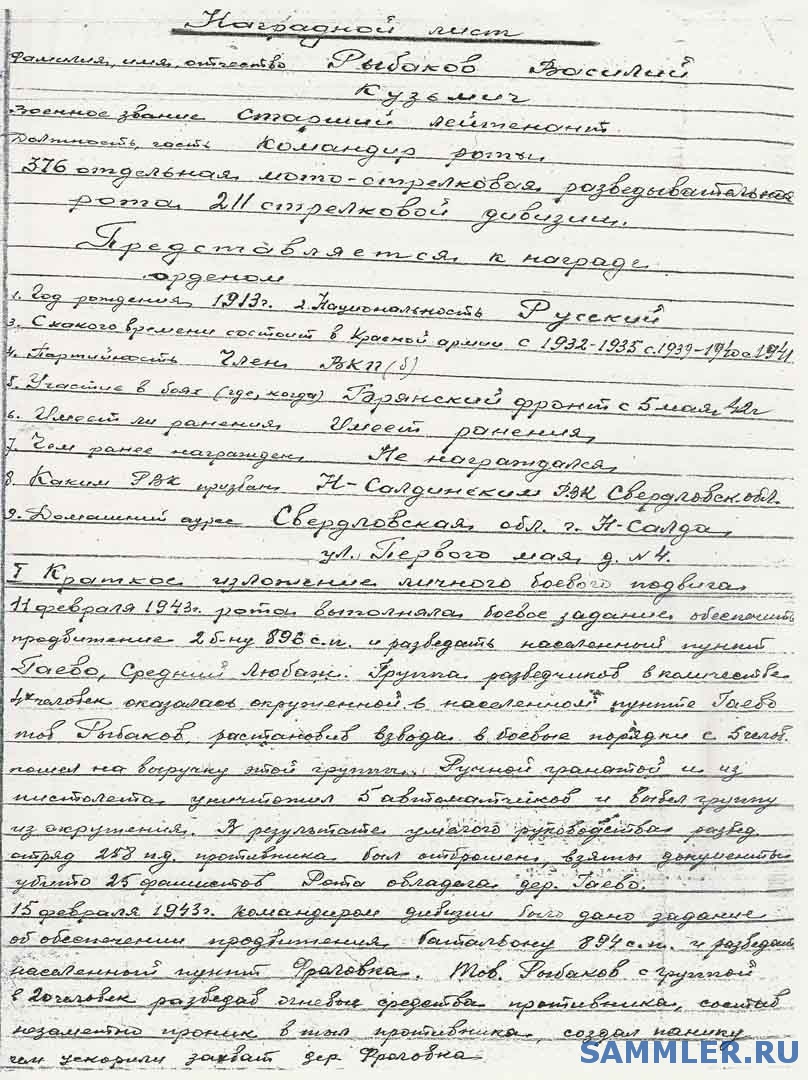 Наградной лист
Фамилия, имя, отчество Рыбаков Василий
Кузьмич
Военное звание старший лейтенант
Должность, часть Командир роты
376 отдельная мото-стрелковая разведывательная
рота 211 стрелковой дивизии.
Представляется к награде
орденом
1. Год рождения 1913г. 2. Национальность Русский
3. С какого времени состоит в Красной армии с 1932-1935 с.1939-1940 с 1941
4. Партийность Член ВКП(б)
5. Участие в боях (где, когда) Брянский фронт с 5 мая 42г
6. Имеет ли ранения Имеет ранения
7. Чем ранее награжден Не награждался
8. Каким РВК призван Н-Салдинским РВК Свердловск.обл.
9. Домашний адрес Свердловская обл. г. Н-Салда,
ул. Первого мая д. №4.
I Краткое изложение личного боевого подвига
11 февраля 1943г. рота выполняла боевое задание обеспечить
продвижение 2 б-ну 896 с.п. и разведать населенный пункт
Гаево, Средний Любаж. Группа разведчиков в количестве
4х человек оказалась окруженной в населенном пункте Гаево
тов Рыбаков, растановив взвода в боевые порядки с 5 челов.
пошел на выручку этой группы. Ручной гранатой и из
пистолета уничтожил 5 автоматчиков и вывел группу
из окружения. В результате умелого руководства развед.
отряд 258 п.д. противника был отброшен, взяты документы
убито 25 фашистов Рота овладела дер. Гаево.
15 февраля 1943г. командиром дивизии было дано задание
об обеспечении продвижения батальону 894 с.п. и разведать
населенный пункт Фроловка. Тов. Рыбаков с группой
в 20 человек разведав огневые средства противника, состав
незаметно проник в тыл противника, создал панику
чем ускорили захват дер Фроловка
SAMMLER.RU